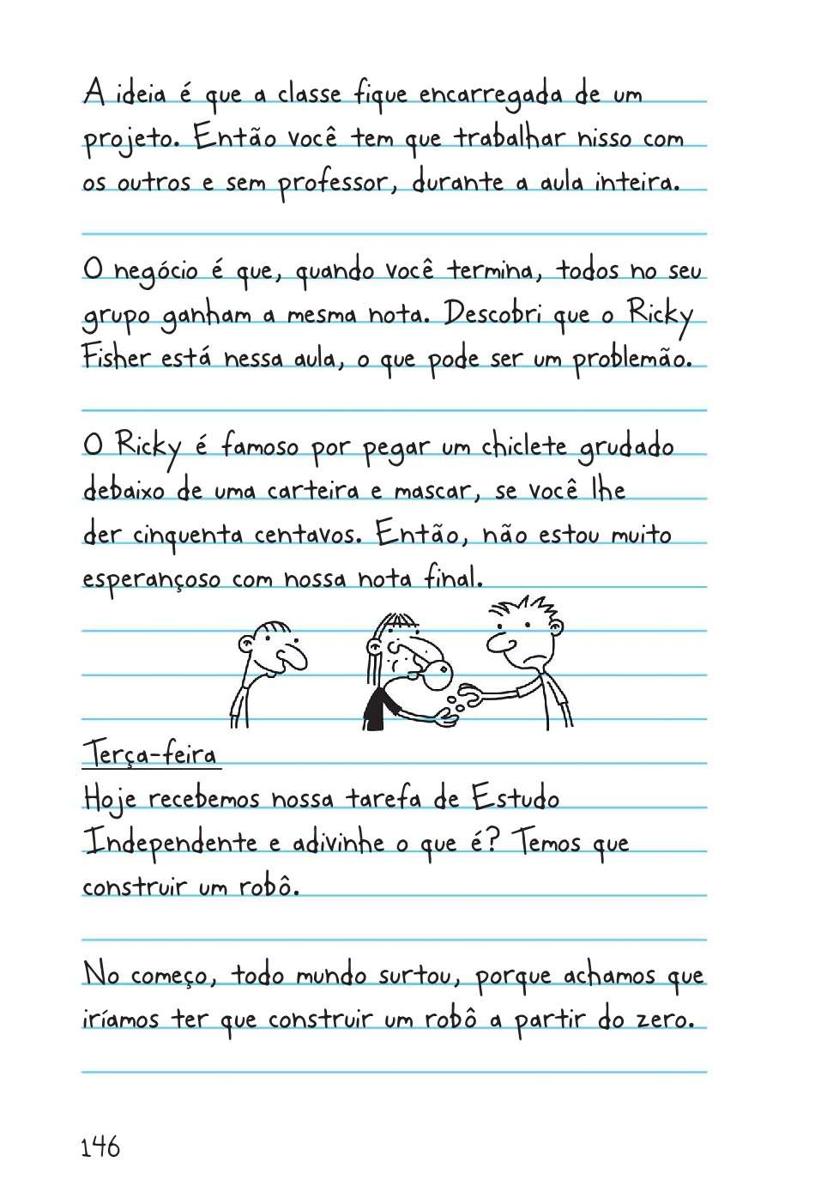 A ideia é que a classe fique encarregada de um
projeto. Então você tem que trabalhar nisso com
os outros e sem professor, durante a aula inteira.
O negócio é que, quando você termina, todos no seu
grupo ganham a mesma nota. Descobri que o Ricky
Fisher está nessa aula, o que pode ser um problemão.
O Ricky é famoso por pegar um chiclete grudado
debaixo de uma carteira e mascar, se você lhe
der cinquenta centavos. Então, não estou muito
esperançoso com nossa nota final.
Terça-feira
Hoje recebemos nossa tarefa de Estudo
Independente e adivinhe o que é? Temos que
construir um robô.
No começo, todo mundo surtou, porque achamos que
iríamos ter que construir um robô a partir do zero.
146